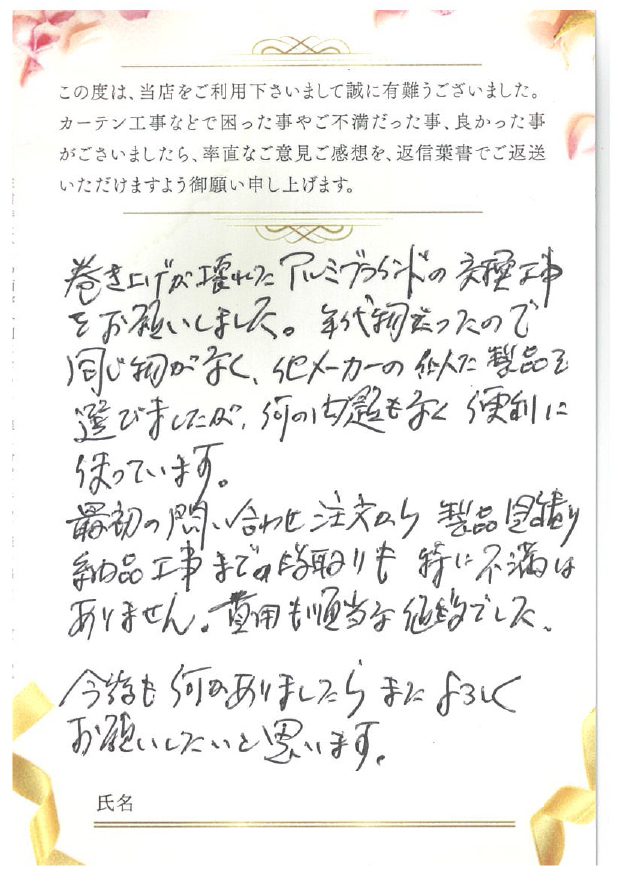 この度は、当店をご利用下さいまして誠に有難うございました。
カーテン工事などで困った事やご不満だった事、良かった事
がございましたら、率直なご意見ご感想を、返信葉書でご返送
いただけますよう御願い申し上げます。
巻き上げが壊れた アルミブラインドの 交換工事
をお願いしました。年代物だったので
同じ物がなく、他メーカーの 似た 製品を
選びましたが、何の問題もなく 便利に
使っています。
最初の問い合わせ 注文から 製品 見積り
納品工事までの段取りも 特に不満は
ありません。費用も順当な 価格でした。
今後も 何かありましたら また よろしく
お願いしたいと思います。
氏名